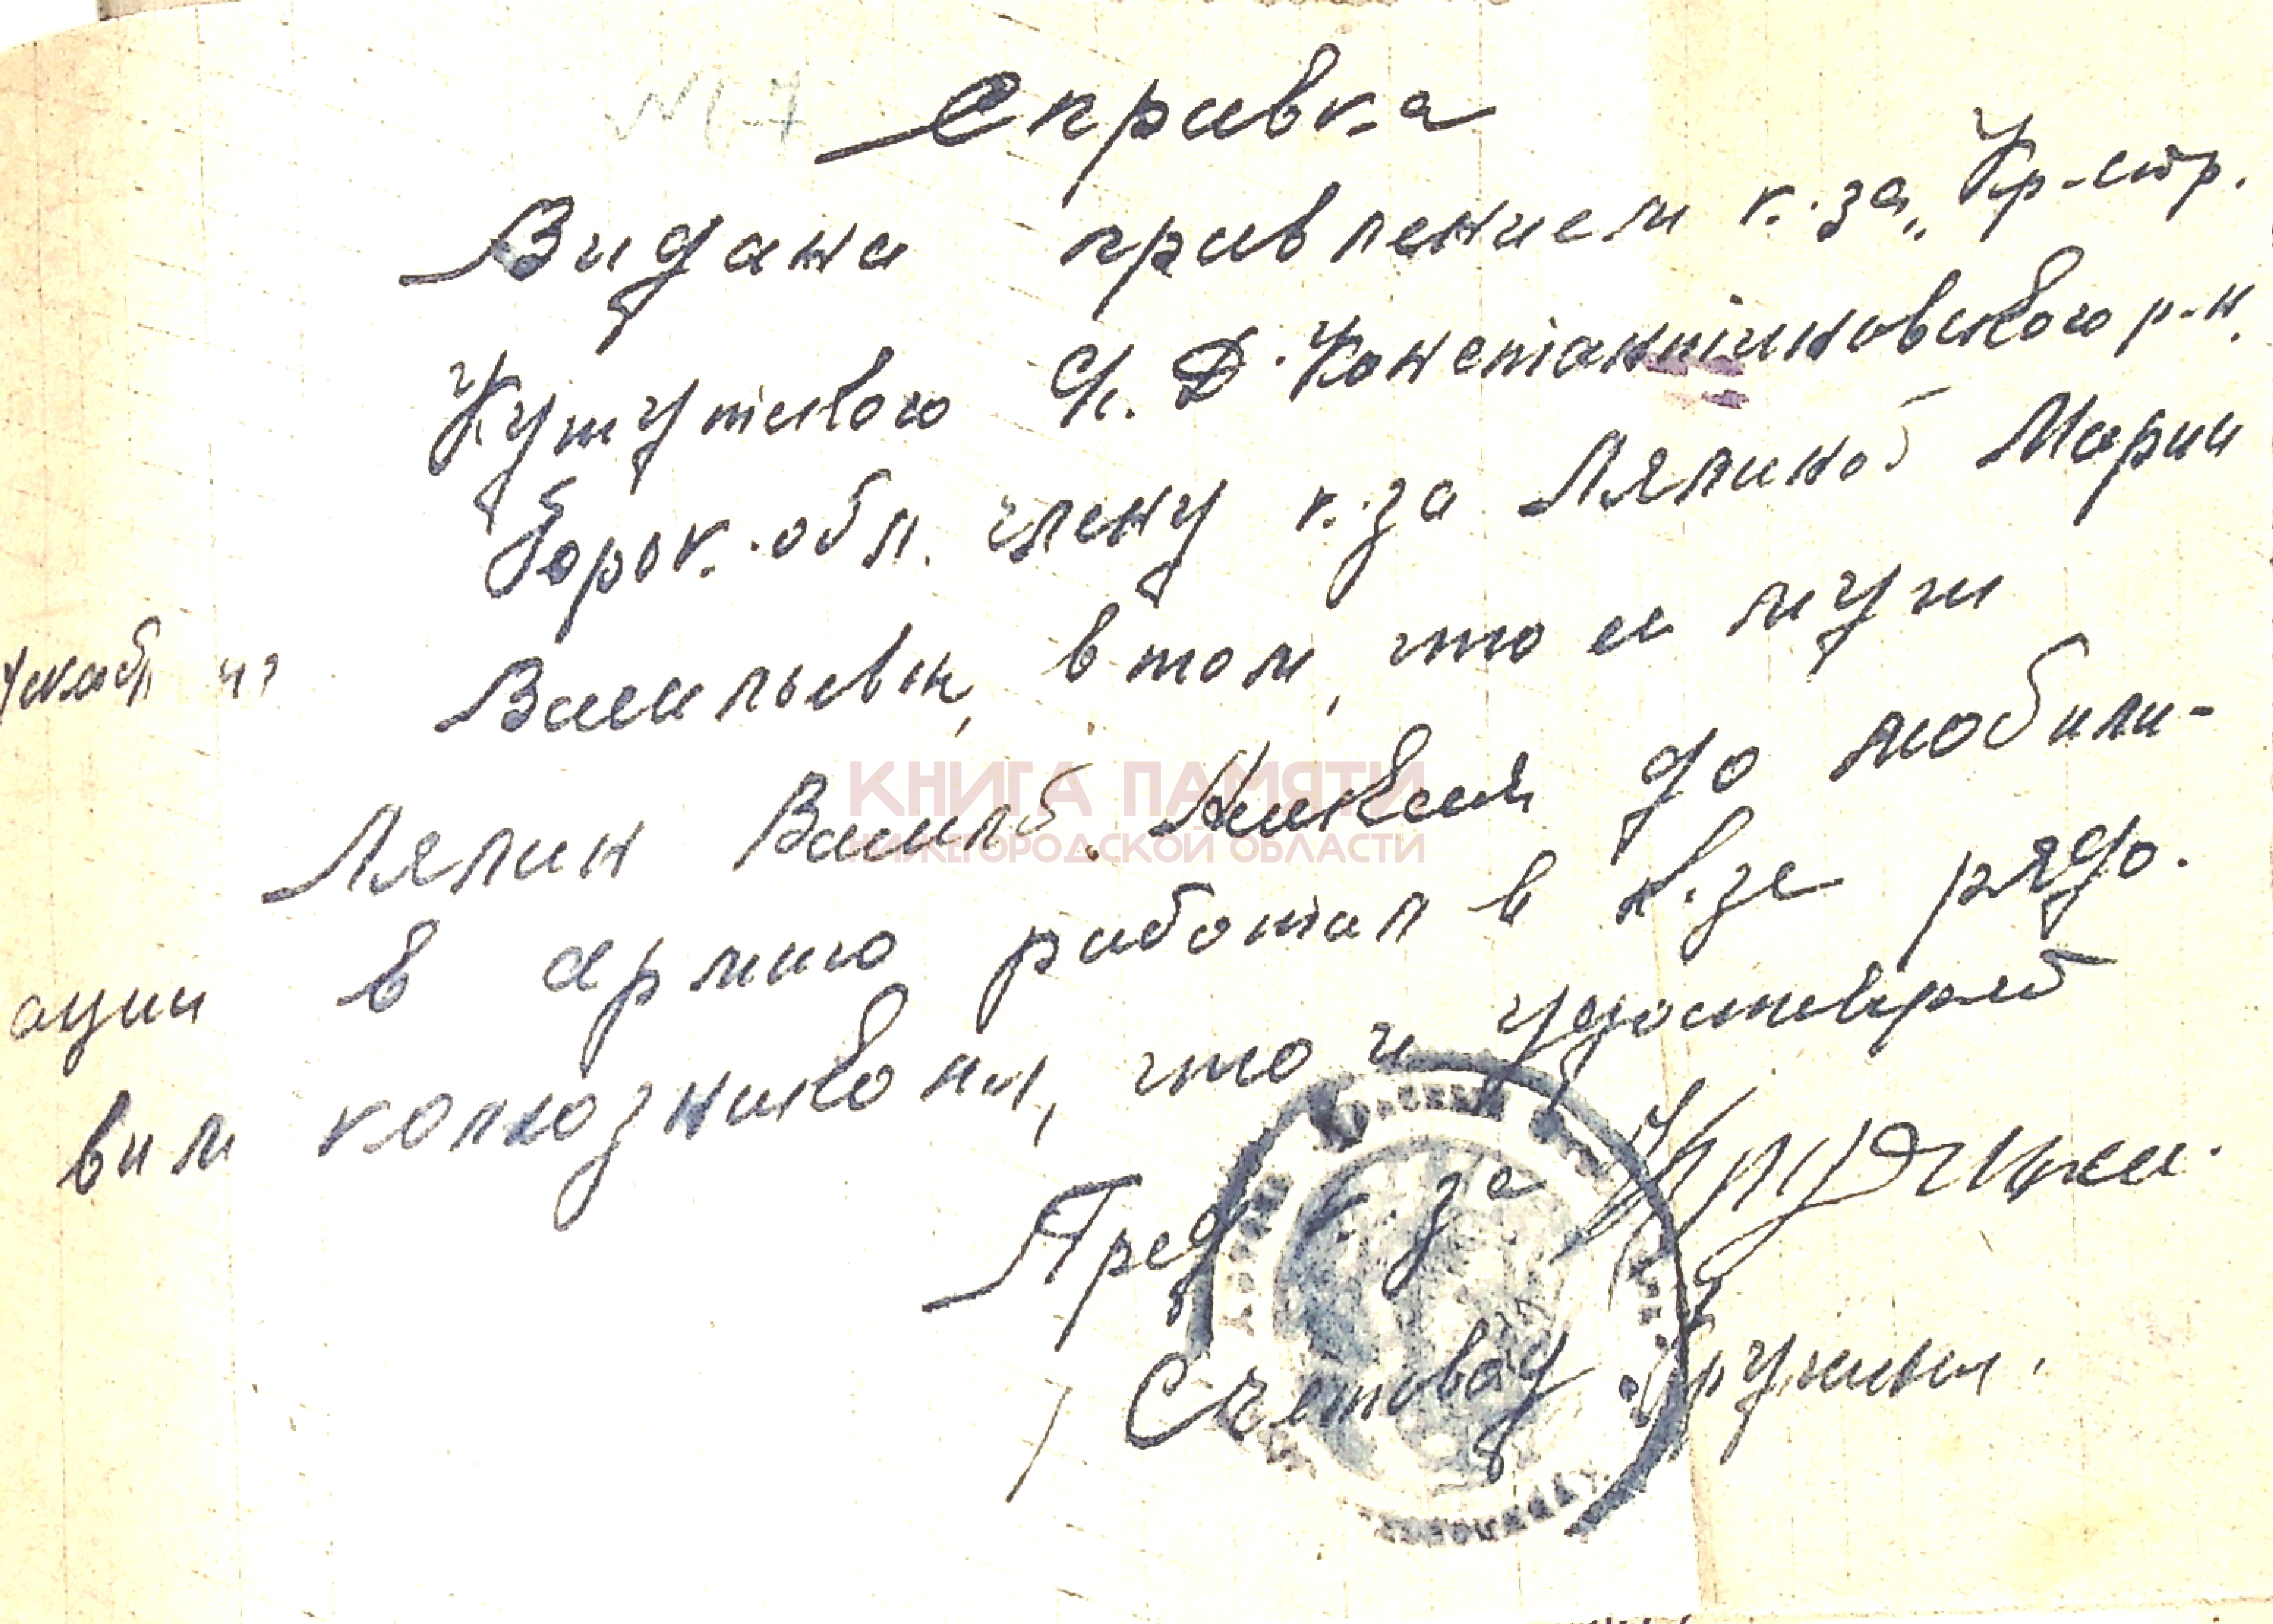 № 7
Справка
Видана правлением к-за „Кр-стр.
Кужутского С/С. Д-Константиновского р-н.
Горьк. обл. члену к-за Ляпиной Марии
Васильевн, в том, что ие муж
Ляпин Василь Алексея до мобили-
ации в армию работал в к-зе рядо-
вим колхозникоми, что и удостоверяет
Пред к-за
Счетовод
КНИГА ПАМЯТИ
НИЖЕГОРОДСКОЙ ОБЛАСТИ